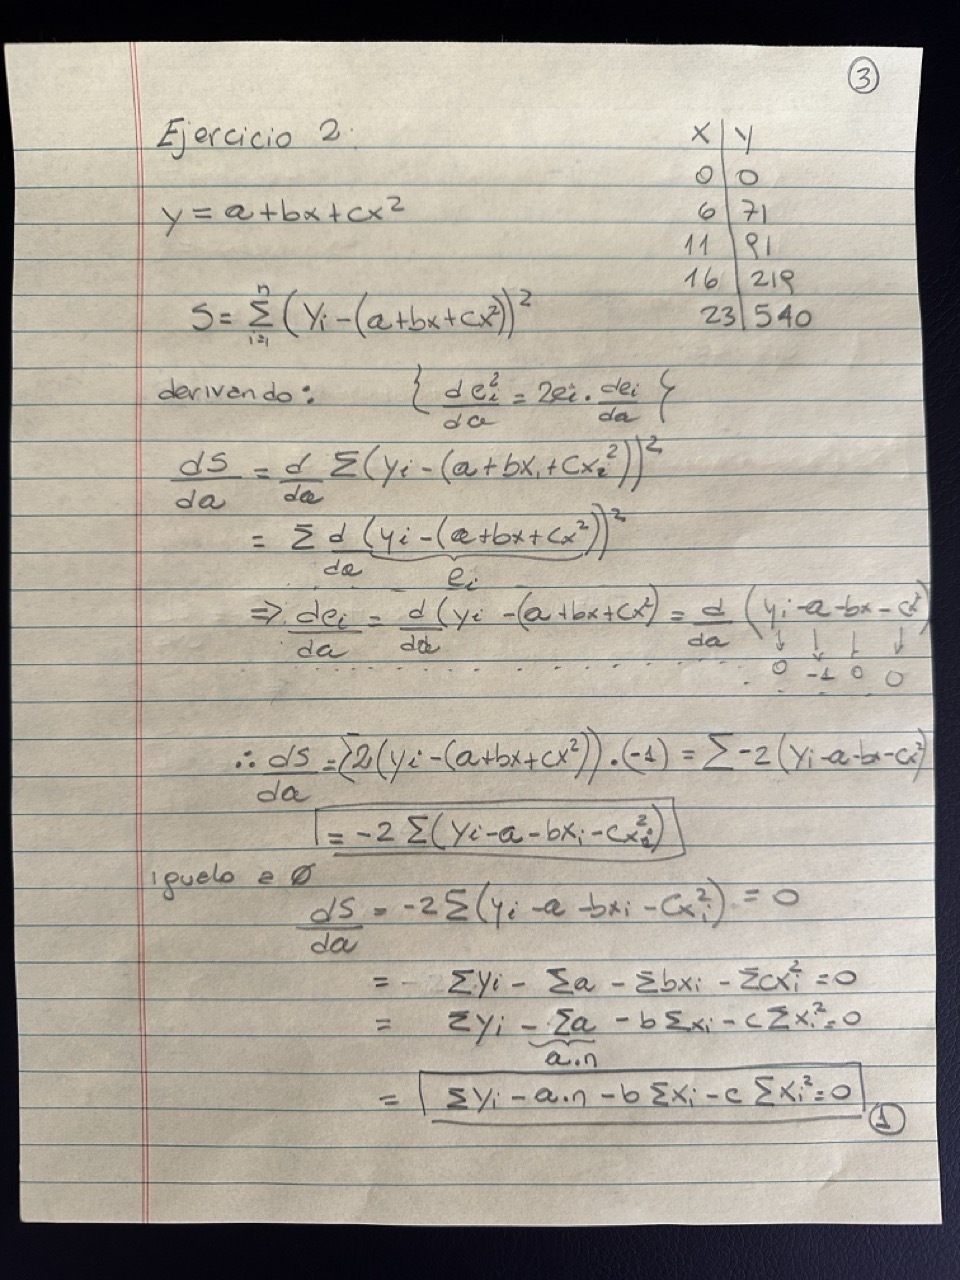 3
Ejercicio 2:
X | Y
0 | 0
6 | 71
11 | 91
16 | 219
23 | 540
y = a+bx+cx²
S = Σⁿᵢ₌₁ (Yi - (a+bx+cx²))²
derivando: { d ei²/da = 2ei · dei/da }
dS/da = d/da Σ(Yi - (a+bxi+cxi²))²
= Σ d/da (yi - (a+bx+cx²))²
ei
⇒ dei/da = d/da (yi - (a+bx+cx²) = d/da (yi - a - bx - cx²)
↓ ↓ ↓ ↓
0 -1 0 0
∴ dS/da = Σ2(yi - (a+bx+cx²)) · (-1) = Σ -2 (Yi - a - bx - cx²)
= -2 Σ(Yi - a - bxi - cxi²)
igualo a Ø
dS/da = -2 Σ(yi - a - bxi - cxi²) = 0
= Σyi - Σa - Σbxi - Σcxi² = 0
= Σyi - Σa - bΣxi - cΣxi² = 0
a.n
= Σyi - a.n - b Σxi - c Σxi² = 0
1